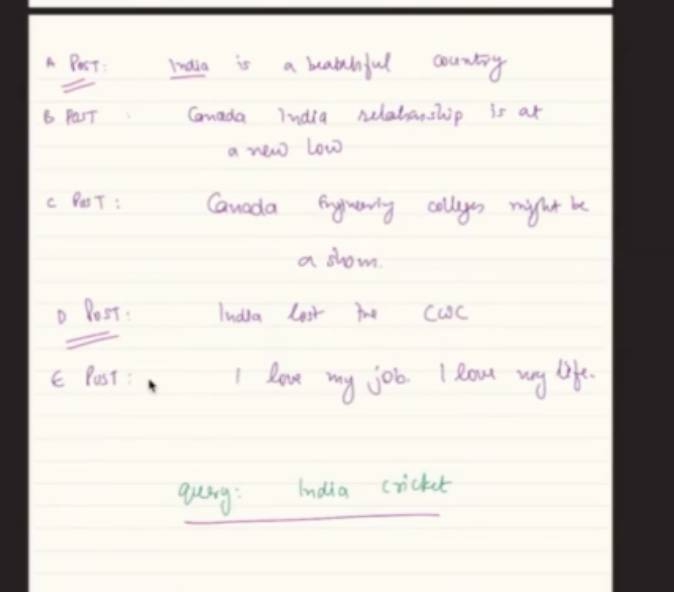 A Post: India is a beautiful country
B Post : Canada India relationship is at
a new low
C Post : Canada Engineering colleges might be
a sham.
D Post: India lost the CWC
E Post : I love my job. I love my life.
query: India cricket